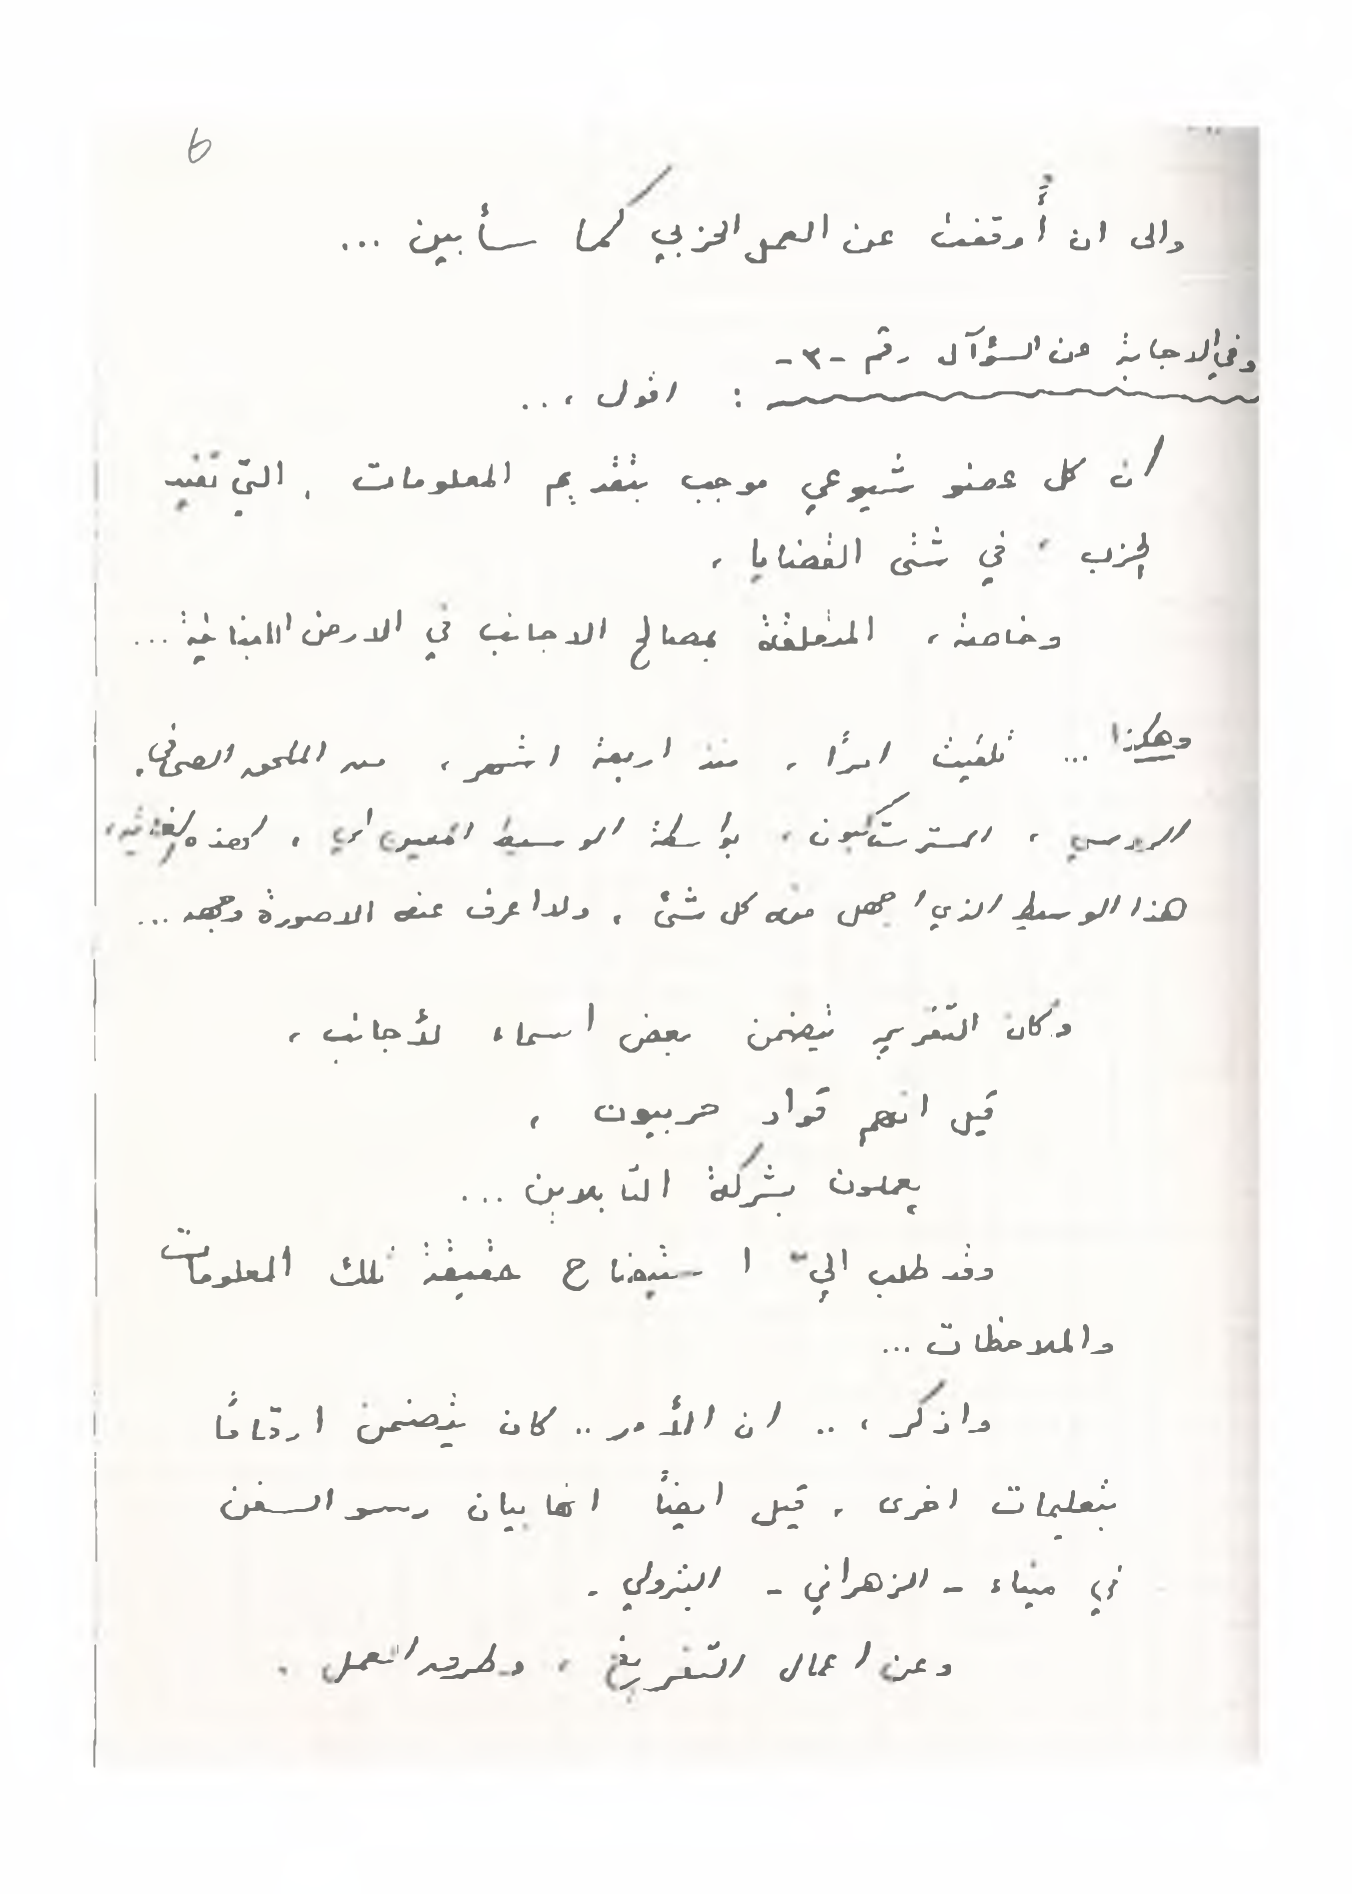 6
والى ان أُوقفت عن العمل الحزبي كما سأبين ...
وفي الاجابة عن السؤآل رقم -٢-
: اقول ، ..
ان كل عضو شيوعي موجب بتقديم المعلومات ، التي تفيد
الحزب ، في شتى القضايا ،
وخاصة ، المتعلقة بمصالح الاجانب في الارض اللبنانية ...
وهكذا ... تلقيت امرًا ، منذ اربعة اشهر ، من الملحق الصحافي ،
الروسي ، المستر ، بواسطة الوسيط المعين الي ، لهذه الغاية ،
هذا الوسيط الذي اجهل منه كل شئ ، ولا اعرف عنه الا صورة وجهه ...
وكان التقرير يتضمن بعض اسماء لأجانب ،
قيل انهم قواد حربيون ،
يعملون بشركة التابلاين ...
وقد طلب اليّ استيضاح حقيقة تلك المعلومات
والملاحظات ...
واذكر ، .. ان الأمر .. كان يتضمن ارقامًا
بتعليمات اخرى ، قيل ايضًا انها بيان رسو السفن
في ميناء - الزهراني - البترولي .
وعن اعمال التفريغ ، وطرق العمل .